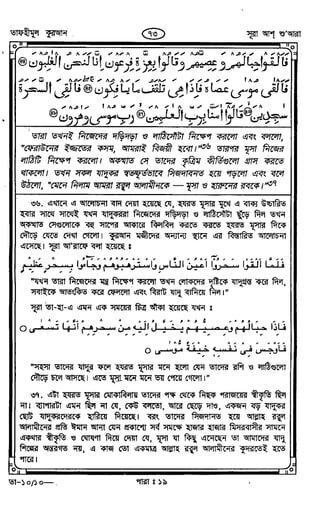 তাফহীমুল কুরআন ৭৩ সূরা আশ্ শু'আরা
فَأَلْقَوْا حِبَالَهُمْ وَعِصِيَّهُمْ وَقَالُوا بِعِزَّةِ فِرْعَوْنَ إِنَّا لَنَحْنُ الْغَالِبُونَ
فَأَلْقَىٰ مُوسَىٰ عَصَاهُ فَإِذَا هِيَ تَلْقَفُ مَا يَأْفِكُونَ فَأُلْقِيَ السَّحَرَةُ
سَاجِدِينَ قَالُوا آمَنَّا بِرَبِّ الْعَالَمِينَ رَبِّ مُوسَىٰ وَهَارُونَ
তারা তখনই নিজেদের দড়িদড়া ও লাঠিসোঁটা নিক্ষেপ করলো এবং বললো,
"ফেরাউনের ইজ্জতের কসম, আমরাই বিজয়ী হবো।"৩৬ তারপর মূসা নিজের
লাঠিটি নিক্ষেপ করলো। অকস্মাত সে তাদের কৃত্রিম কীর্তিগুলো গ্রাস করতে
থাকলো। তখন সকল যাদুকর স্বতস্ফূর্তভাবে সিজদাবনত হয়ে পড়লো এবং বলে
উঠলো, "মেনে নিলাম আমরা রব্বুল আলামীনকে — মূসা ও হারুনের রবকে।"৩৭
৩৬. এখানে এ আলোচনা বাদ দেয়া হয়েছে যে, হযরত মূসার মুখে এ বাক্য উচ্চারিত
হবার সাথে সাথেই যখন যাদুকররা নিজেদের দড়িদড়া ও লাঠিসোঁটা ছুঁড়ে দিল তখন
অকস্মাত সেগুলোকে বহু সাপের আকারে কিলবিল করতে করতে হযরত মূসার দিকে
দৌড়ে যেতে দেখা গেলো। কুরআন মজীদের অন্যান্য স্থানে এর বিস্তারিত আলোচনা
এসেছে। সূরা আ'রাফে বলা হয়েছে :
فَلَمَّا أَلْقَوْا سَحَرُوا أَعْيُنَ النَّاسِ وَاسْتَرْهَبُوهُمْ وَجَاءُوا بِسِحْرٍ عَظِيمٍ
"যখন তারা নিজেদের মন্ত্র নিক্ষেপ করলো তখন লোকদের দৃষ্টিকে যাদুগ্রস্ত করে দিল,
সবাইকে আতংকিত করে ফেললো এবং বিরাট যাদু বানিয়ে নিল।"
সূরা তা-হা-এ এখন এক সময়ের চিত্র আঁকা হয়েছে যখন :
فَإِذَا حِبَالُهُمْ وَعِصِيُّهُمْ يُخَيَّلُ إِلَيْهِ مِنْ سِحْرِهِمْ أَنَّهَا تَسْعَىٰ ○
فَأَوْجَسَ فِي نَفْسِهِ خِيفَةً مُوسَىٰ ○
"সহসা তাদের যাদুর ফলে হযরত মূসার মনে হলো যেন তাদের রশি ও লাঠিগুলো
দৌড়ে চলে আসছে। এতে মূসা মনে মনে ভয় পেয়ে গেলো।"
৩৭. এটা হযরত মূসার মোকাবিলায় তাদের পক্ষ থেকে নিছক পরাজয়ের স্বীকৃতি ছিল
না। ব্যাপারটা এমন ছিল না যে, কেউ বলতো, আরে ছেড়ে দাও, একজন বড় যাদুকর
ছোট যাদুকরদেরকে হারিয়ে দিয়েছে। বরং তাদের সিজদাবনত হয়ে আল্লাহ রব্বুল
আলামীনের প্রতি ঈমান আনা যেন প্রকাশ্যে সর্ব সমক্ষে হাজার হাজার মিসরবাসীর সামনে
একথার স্বীকৃতি ও ঘোষণা দিয়ে দেয়া যে, মূসা যা কিছু এনেছেন তা আমাদের যাদু
শিল্পের অন্তরগত নয়, এ কাজ তো একমাত্র আল্লাহ রব্বুল আলামীনের কুদরতেই হতে
পারে।
তা-১০/১০— পারা : ১৯